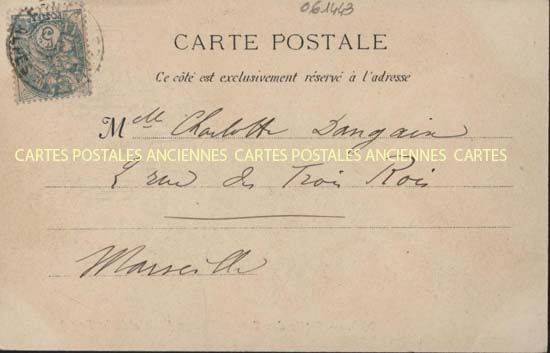 061443
CARTE POSTALE
Ce côté est exclusivement réservé à l'adresse
Mlle Charlotte Dangain
CARTES POSTALES ANCIENNES CARTES POSTALES ANCIENNES CARTES
rue des Trois Rois
Marseille